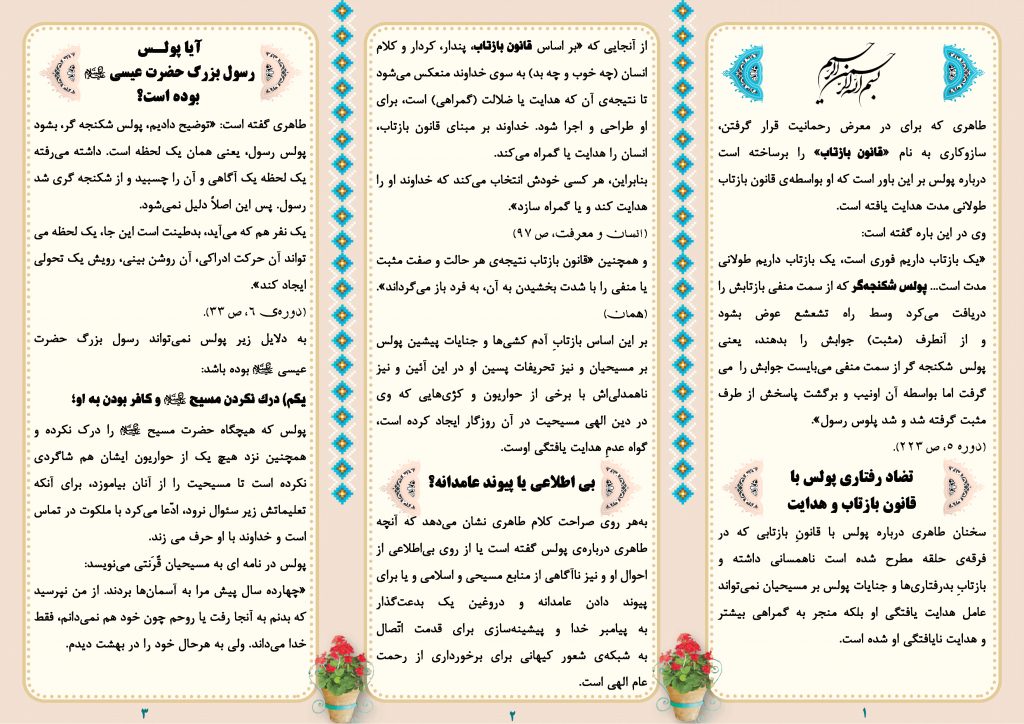 بسم الله الرحمن الرحیم
طاهری که برای در معرض رحمانیت قرار گرفتن،
سازوکاری به نام «قانون بازتاب» را برساخته است
درباره پولس بر این باور است که او بواسطه‌ی قانون بازتاب
طولانی مدت هدایت یافته است.
وی در این باره گفته است:
«یک بازتاب داریم فوری است، یک بازتاب داریم طولانی
مدت است... پولس شکنجه‌گر که از سمت منفی بازتابش را
دریافت می‌کرد وسط راه تشعشع عوض بشود
و از آنطرف (مثبت) جوابش را بدهند، یعنی
پولس شکنجه گر از سمت منفی می‌بایست جوابش را می
گرفت اما بواسطه آن اونیب و برگشت پاسخش از طرف
مثبت گرفته شد و شد پلوس رسول».
(دوره ۵، ص ۲۲۳).
تضاد رفتاری پولس با
قانون بازتاب و هدایت
سخنان طاهری درباره پولس با قانونِ بازتابی که در
فرقه‌ی حلقه مطرح شده است ناهمسانی داشته و
بازتابِ بدرفتاری‌ها و جنایات پولس بر مسیحیان نمی‌تواند
عامل هدایت یافتگی او بلکه منجر به گمراهی بیشتر
و هدایت نایافتگی او شده است.
۱
از آنجایی که «بر اساس قانون بازتاب، پندار، کردار و کلام
انسان (چه خوب و چه بد) به سوی خداوند منعکس می‌شود
تا نتیجه‌ی آن که هدایت یا ضلالت (گمراهی) است، برای
او طراحی و اجرا شود. خداوند بر مبنای قانون بازتاب،
انسان را هدایت یا گمراه می‌کند.
بنابراین، هر کسی خودش انتخاب می‌کند که خداوند او را
هدایت کند و یا گمراه سازد».
(انسان و معرفت، ص ۹۷)
و همچنین «قانون بازتاب نتیجه‌ی هر حالت و صفت مثبت
یا منفی را با شدت بخشیدن به آن، به فرد باز می‌گرداند».
(همان)
بر این اساس بازتابِ آدم کشی‌ها و جنایات پیشین پولس
بر مسیحیان و نیز تحریفات پسین او در این آئین و نیز
ناهمدلی‌اش با برخی از حواریون و کژی‌هایی که وی
در دین الهی مسیحیت در آن روزگار ایجاد کرده است،
گواه عدمِ هدایت یافتگی اوست.
بی اطلاعی یا پیوند عامدانه؟
به‌هر روی صراحت کلام طاهری نشان می‌دهد که آنچه
طاهری درباره‌ی پولس گفته است یا از روی بی‌اطلاعی از
احوال او و نیز ناآگاهی از منابع مسیحی و اسلامی و یا برای
پیوند دادن عامدانه و دروغین یک بدعت‌گذار
به پیامبر خدا و پیشینه‌سازی برای قدمت اتّصال
به شبکه‌ی شعور کیهانی برای برخورداری از رحمت
عام الهی است.
۲
آیا پولــس
رسول بزرگ حضرت عیسی علیه‌السلام
بوده است؟
طاهری گفته است: «توضیح دادیم، پولس شکنجه گر، بشود
پولس رسول، یعنی همان یک لحظه است. داشته می‌رفته
یک لحظه یک آگاهی و آن را چسبید و از شکنجه گری شد
رسول. پس این اصلاً دلیل نمی‌شود.
یک نفر هم که می‌آید، بدطینت است این جا، یک لحظه می
تواند آن حرکت ادراکی، آن روشن بینی، رویش یک تحولی
ایجاد کند».
(دوره‌ی ۶، ص ۳۳).
به دلایل زیر پولس نمی‌تواند رسول بزرگ حضرت
عیسی علیه‌السلام بوده باشد:
یکم) درک نکردن مسیح علیه‌السلام و کافر بودن به او؛
پولس که هیچگاه حضرت مسیح علیه‌السلام را درک نکرده و
همچنین نزد هیچ یک از حواریون ایشان هم شاگردی
نکرده است تا مسیحیت را از آنان بیاموزد، برای آنکه
تعلیماتش زیر سئوال نرود، ادّعا می‌کرد با ملکوت در تماس
است و خداوند با او حرف می زند.
پولس در نامه ای به مسیحیان قُرَنتی می‌نویسد:
«چهارده سال پیش مرا به آسمان‌ها بردند. از من نپرسید
که بدنم به آنجا رفت یا روحم چون خود هم نمی‌دانم، فقط
خدا می‌داند. ولی به هرحال خود را در بهشت دیدم.
۳